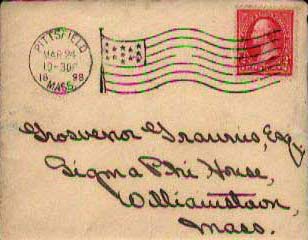 PITTSFIELD
MAR 24
18 98
MASS.
Grosvenor
Sigma Phi House,
Williamstown,
Mass.